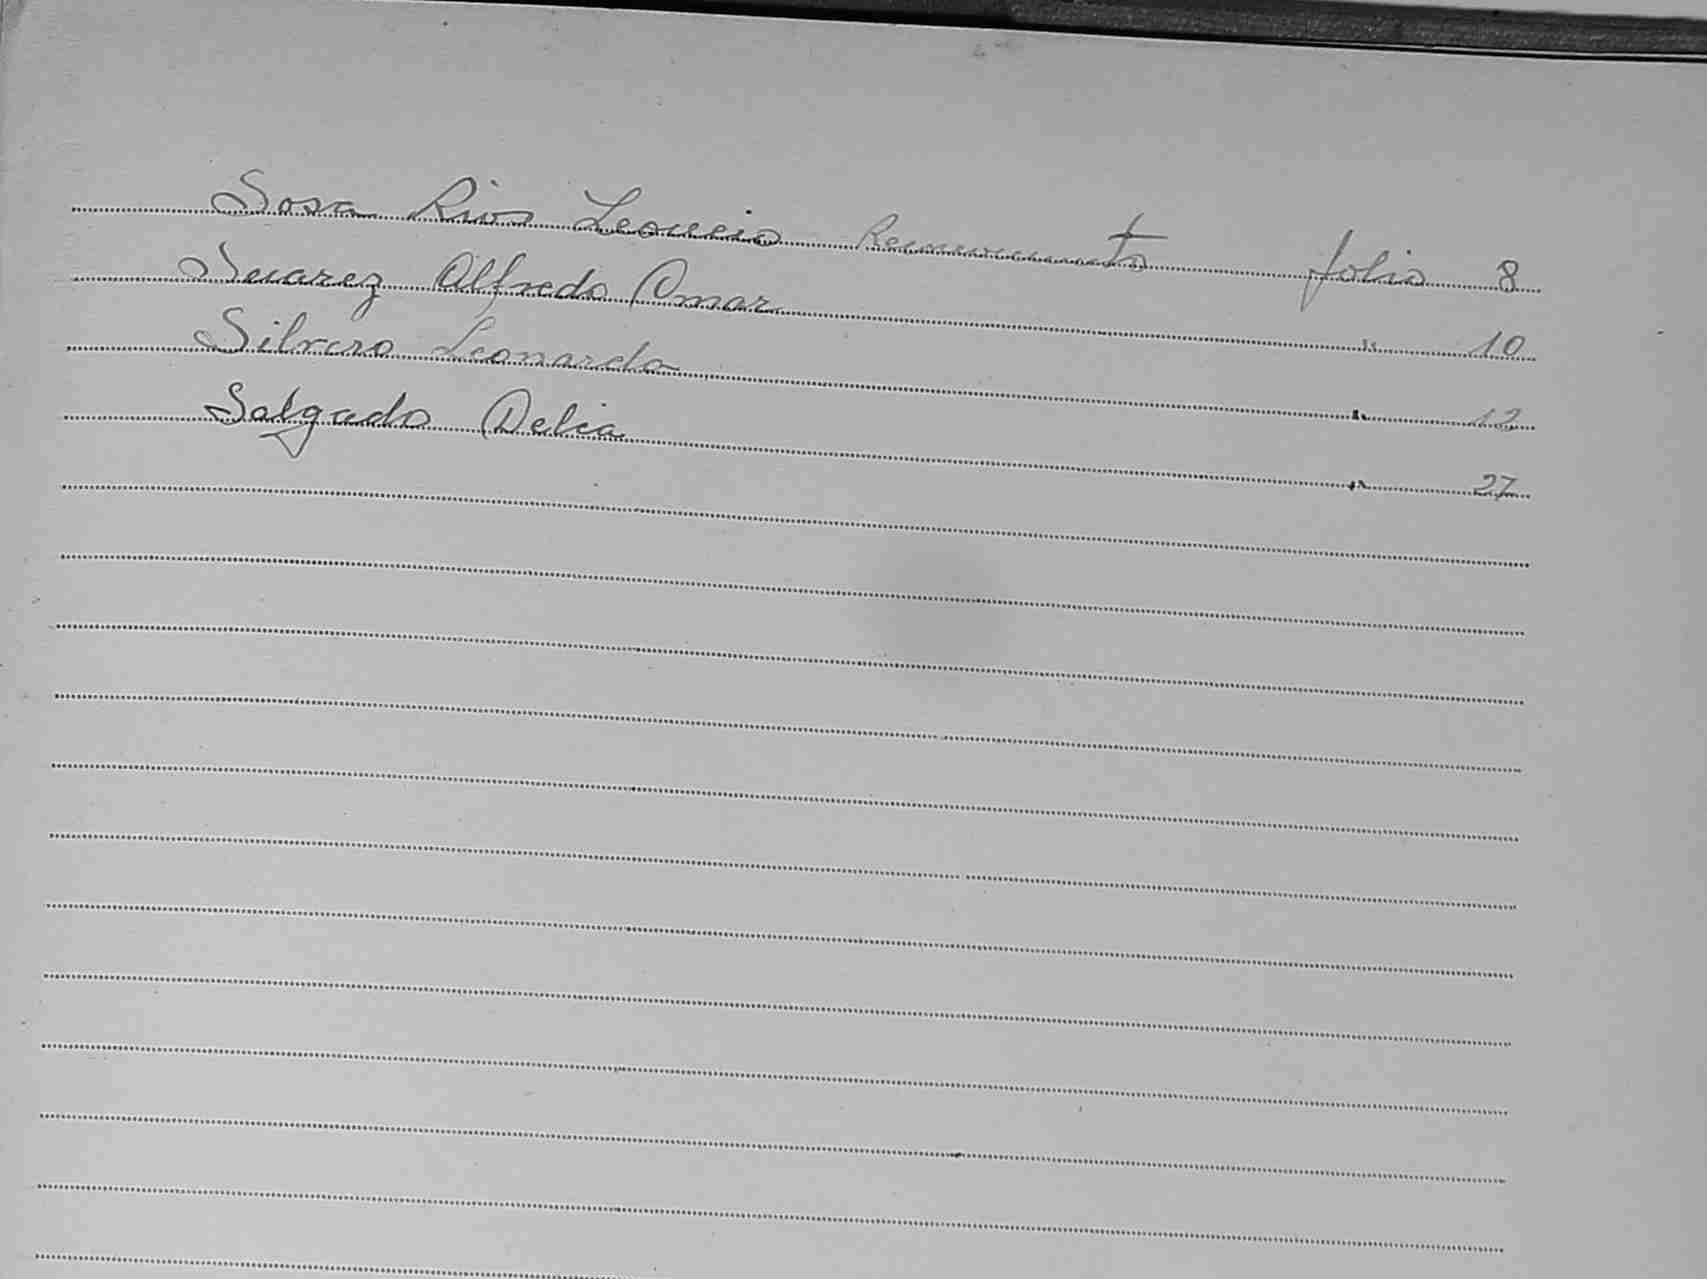 Sosa Rios Leoncio Reconocimiento folio 8
Suarez Alfredo Omar " 10
Silvero Leonardo " 12
Salgado Delia " 27